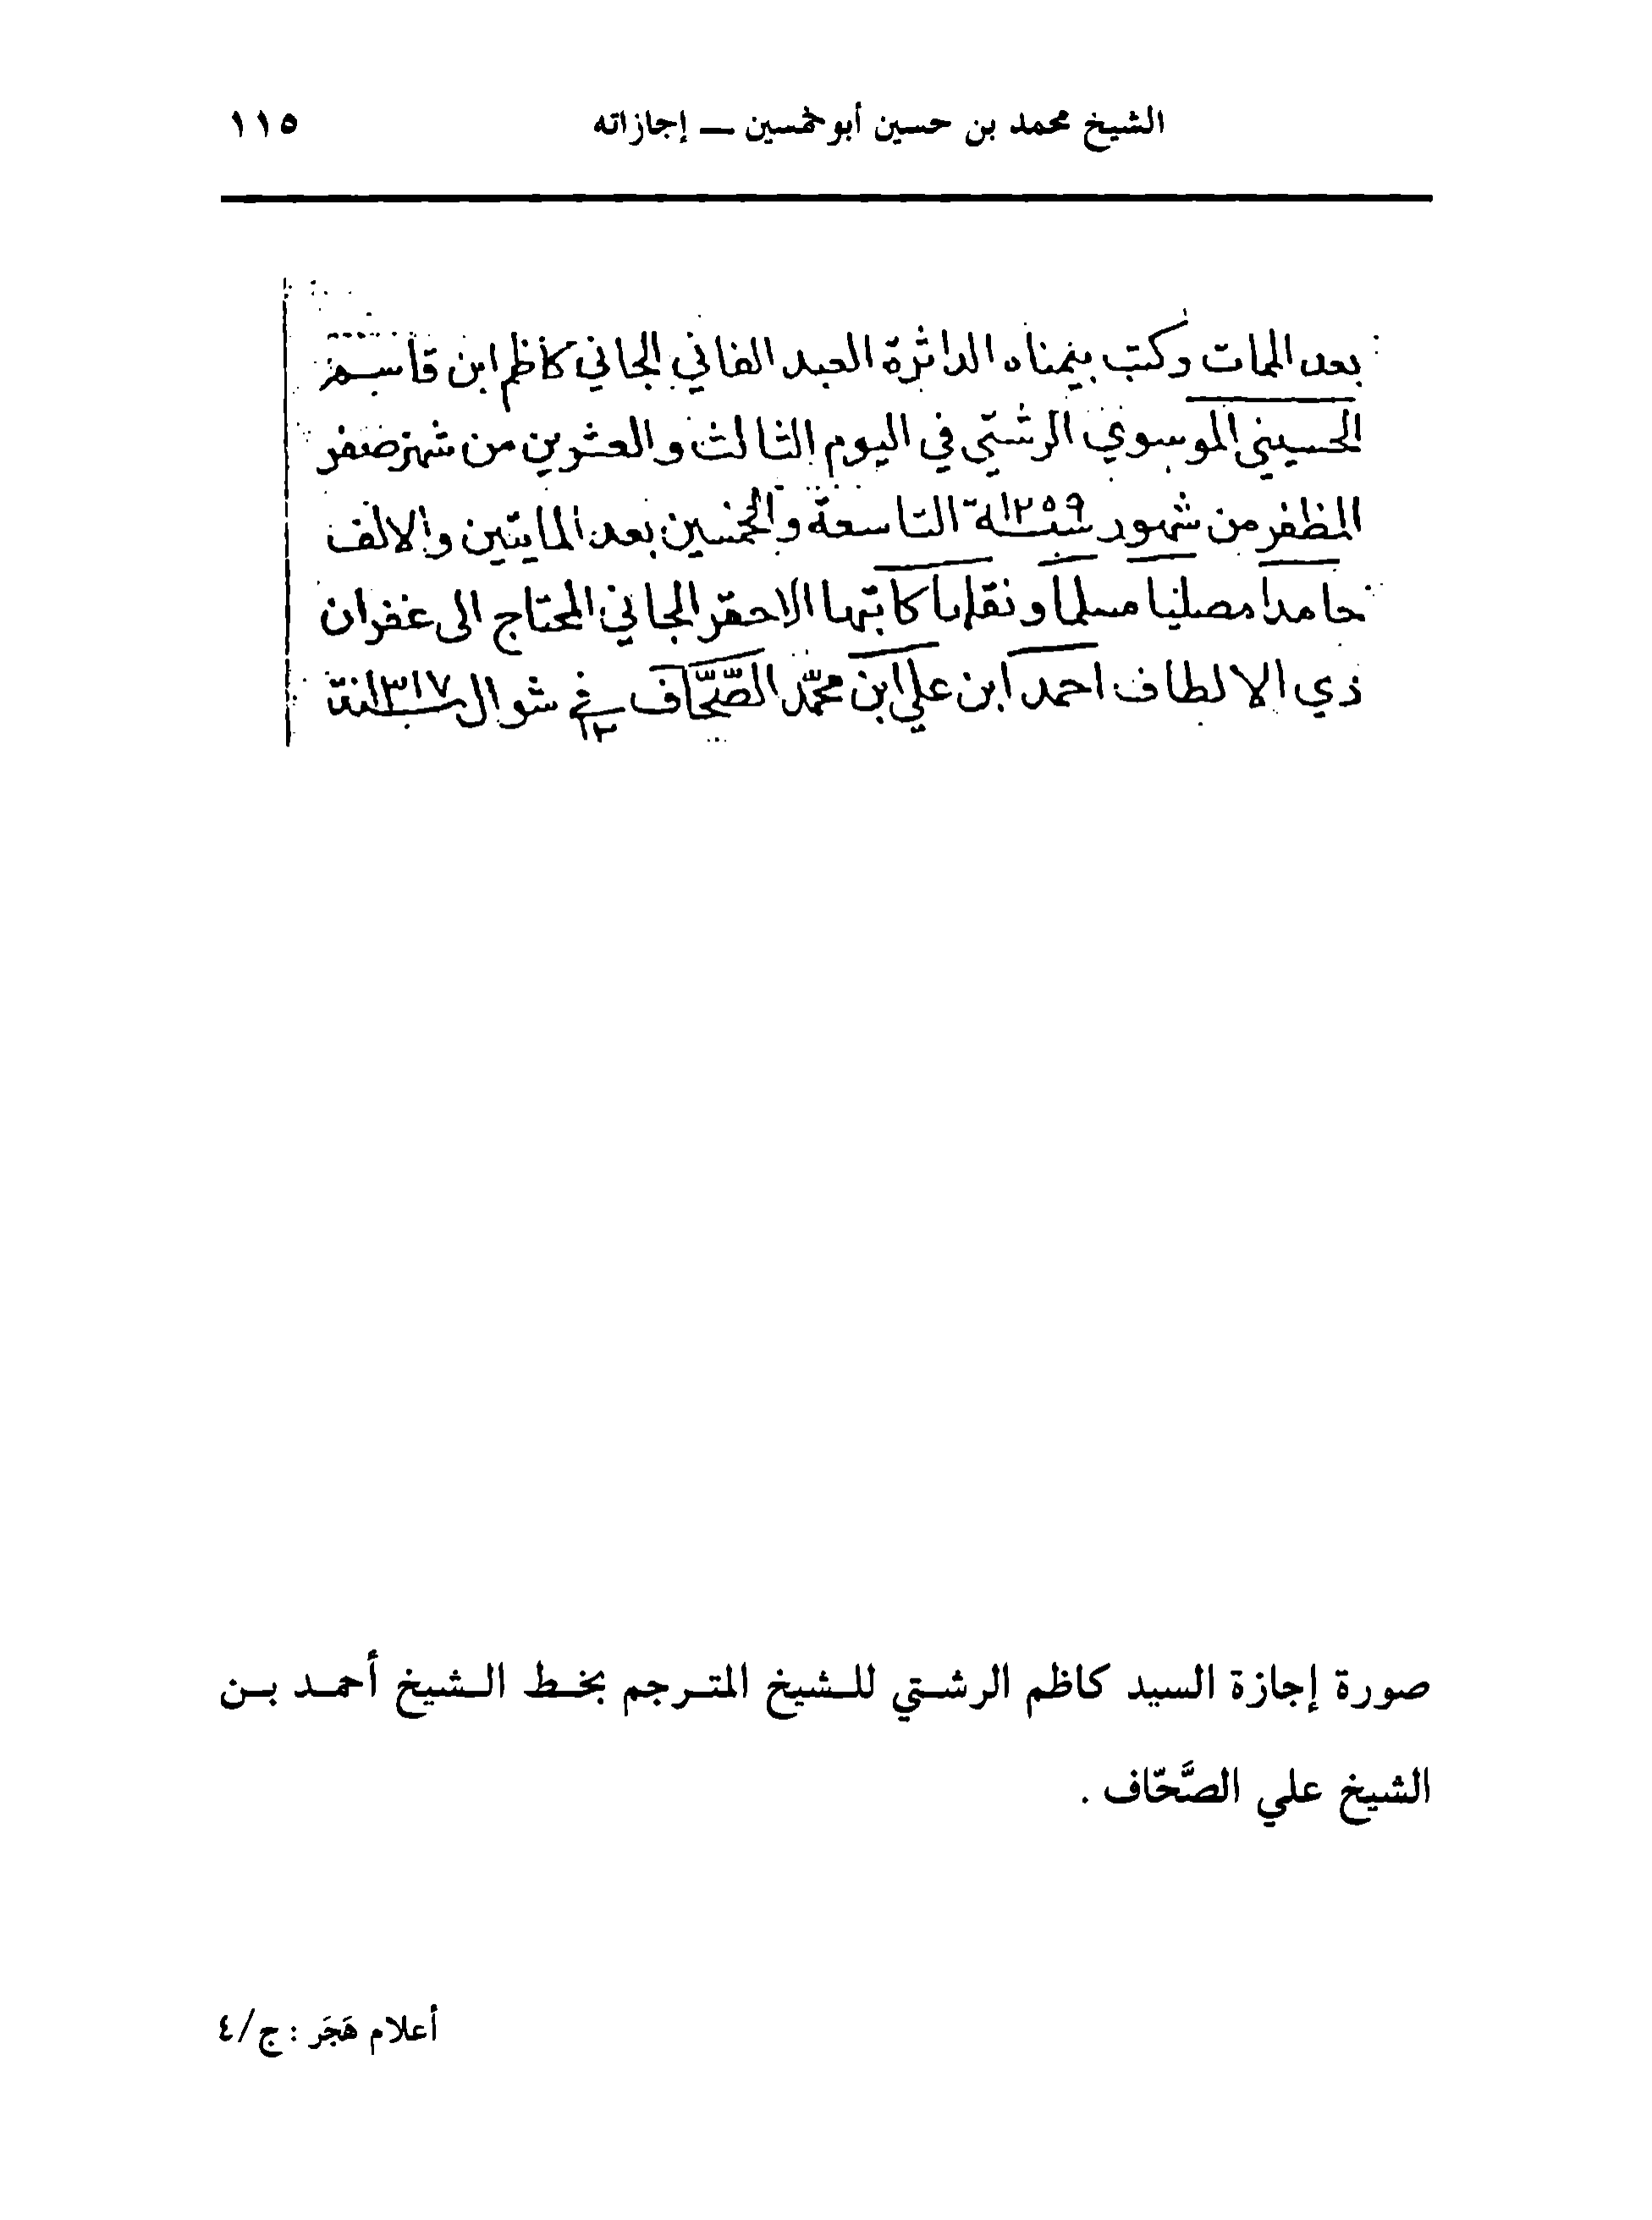 الشيخ محمد بن حسين أبو خمسين — إجازاته ١١٥
بعد الممات وكتب بيمناه الداثرة العبد الفاني الجاني كاظم ابن قاسم
الحسيني الموسوي الرشتي في اليوم الثالث والعشرين من شهر صفر
المظفر من شهور سنة ١٢٥٩ التاسعة والخمسين بعد المايتين والالف
حامدا مصليا مسلما ونقلها كاتبها الاحقر الجاني المحتاج الى غفران
ذي الالطاف احمد ابن علي ابن محمد الصّحّاف في ١٢ شوال سنة ١٣١٧
صورة إجازة السيد كاظم الرشتي للشيخ المترجم بخط الشيخ أحمد بن
الشيخ علي الصَّحّاف .
أعلام هَجَر : ج/٤